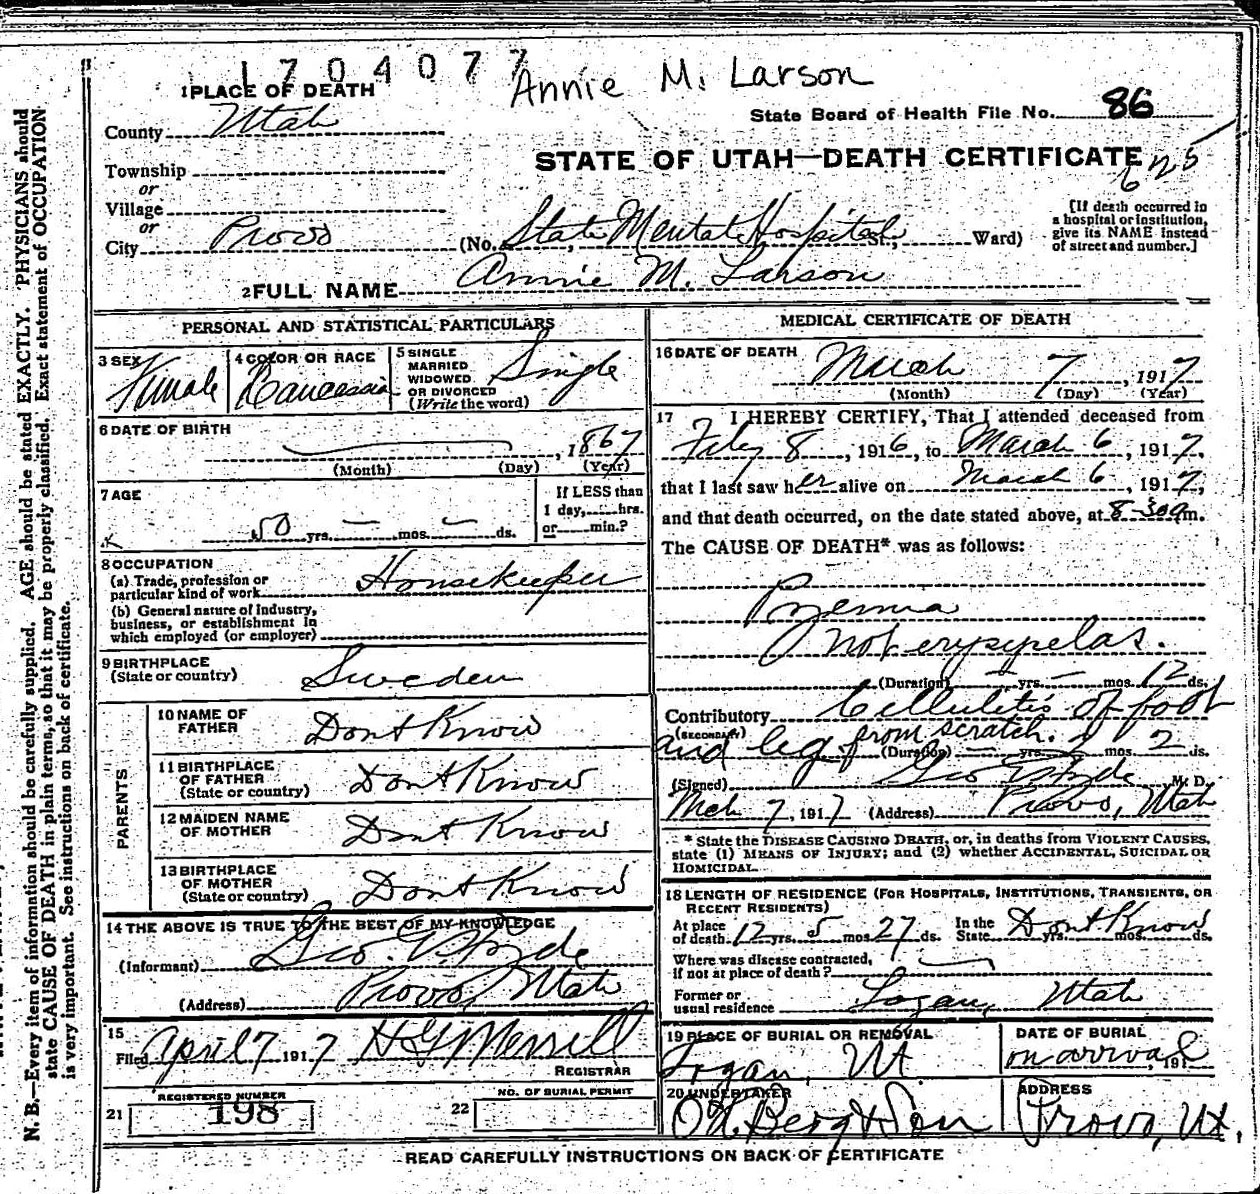 1704077
Annie M. Larson
1 PLACE OF DEATH
County Utah
State Board of Health File No. 86
STATE OF UTAH—DEATH CERTIFICATE
625
Township
or
Village
or
City Provo (No. State Mental Hospital St., Ward)
[If death occurred in
a hospital or institution,
give its NAME instead
of street and number.]
2 FULL NAME Annie M. Larson
PERSONAL AND STATISTICAL PARTICULARS
3 SEX Female
4 COLOR OR RACE Caucassian
5 SINGLE
MARRIED
WIDOWED
OR DIVORCED
(Write the word) Single
6 DATE OF BIRTH
, 1867
(Month) (Day) (Year)
7 AGE
50 yrs. — mos. — ds.
If LESS than
1 day, hrs.
or min.?
8 OCCUPATION
(a) Trade, profession or
particular kind of work Housekeeper
(b) General nature of Industry,
business, or establishment in
which employed (or employer)
9 BIRTHPLACE
(State or country) Sweden
PARENTS
10 NAME OF
FATHER Dont Know
11 BIRTHPLACE
OF FATHER
(State or country) Dont Know
12 MAIDEN NAME
OF MOTHER Dont Know
13 BIRTHPLACE
OF MOTHER
(State or country) Dont Know
14 THE ABOVE IS TRUE TO THE BEST OF MY KNOWLEDGE
(Informant) Geo. E. Hyde
(Address) Provo, Utah
15
Filed April 7 1917 H G Merrill
REGISTRAR
REGISTERED NUMBER
21 198
NO. OF BURIAL PERMIT
22
MEDICAL CERTIFICATE OF DEATH
16 DATE OF DEATH March 7, 1917
(Month) (Day) (Year)
17 I HEREBY CERTIFY, That I attended deceased from
Feby 8, 1916, to March 6, 1917,
that I last saw her alive on March 6, 1917,
and that death occurred, on the date stated above, at 8-30am.
The CAUSE OF DEATH* was as follows:
Pyemia
not erysypelas.
(Duration) — yrs. — mos. 12 ds.
Contributory Cellulitis of foot
(SECONDARY)
and leg from scratch.
(Duration) — yrs. mos. 2 ds.
(Signed) Geo E Hyde M. D.
Mch 7, 1917 (Address) Provo, Utah
* State the DISEASE CAUSING DEATH, or, in deaths from VIOLENT CAUSES,
state (1) MEANS OF INJURY; and (2) whether ACCIDENTAL, SUICIDAL OR
HOMICIDAL.
18 LENGTH OF RESIDENCE (FOR HOSPITALS, INSTITUTIONS, TRANSIENTS, OR
RECENT RESIDENTS)
At place
of death 12 yrs. 5 mos. 27 ds.
In the
State Dont Know yrs. mos. ds.
Where was disease contracted,
if not at place of death?
Former or
usual residence Logan, Utah
19 PLACE OF BURIAL OR REMOVAL
Logan, Ut
DATE OF BURIAL
on arrival, 191
20 UNDERTAKER
O H Berg & Son
ADDRESS
Provo, Ut.
READ CAREFULLY INSTRUCTIONS ON BACK OF CERTIFICATE
N. B.—Every item of information should be carefully supplied. AGE should be stated EXACTLY. PHYSICIANS should
state CAUSE OF DEATH in plain terms, so that it may be properly classified. Exact statement of OCCUPATION
is very important. See instructions on back of certificate.